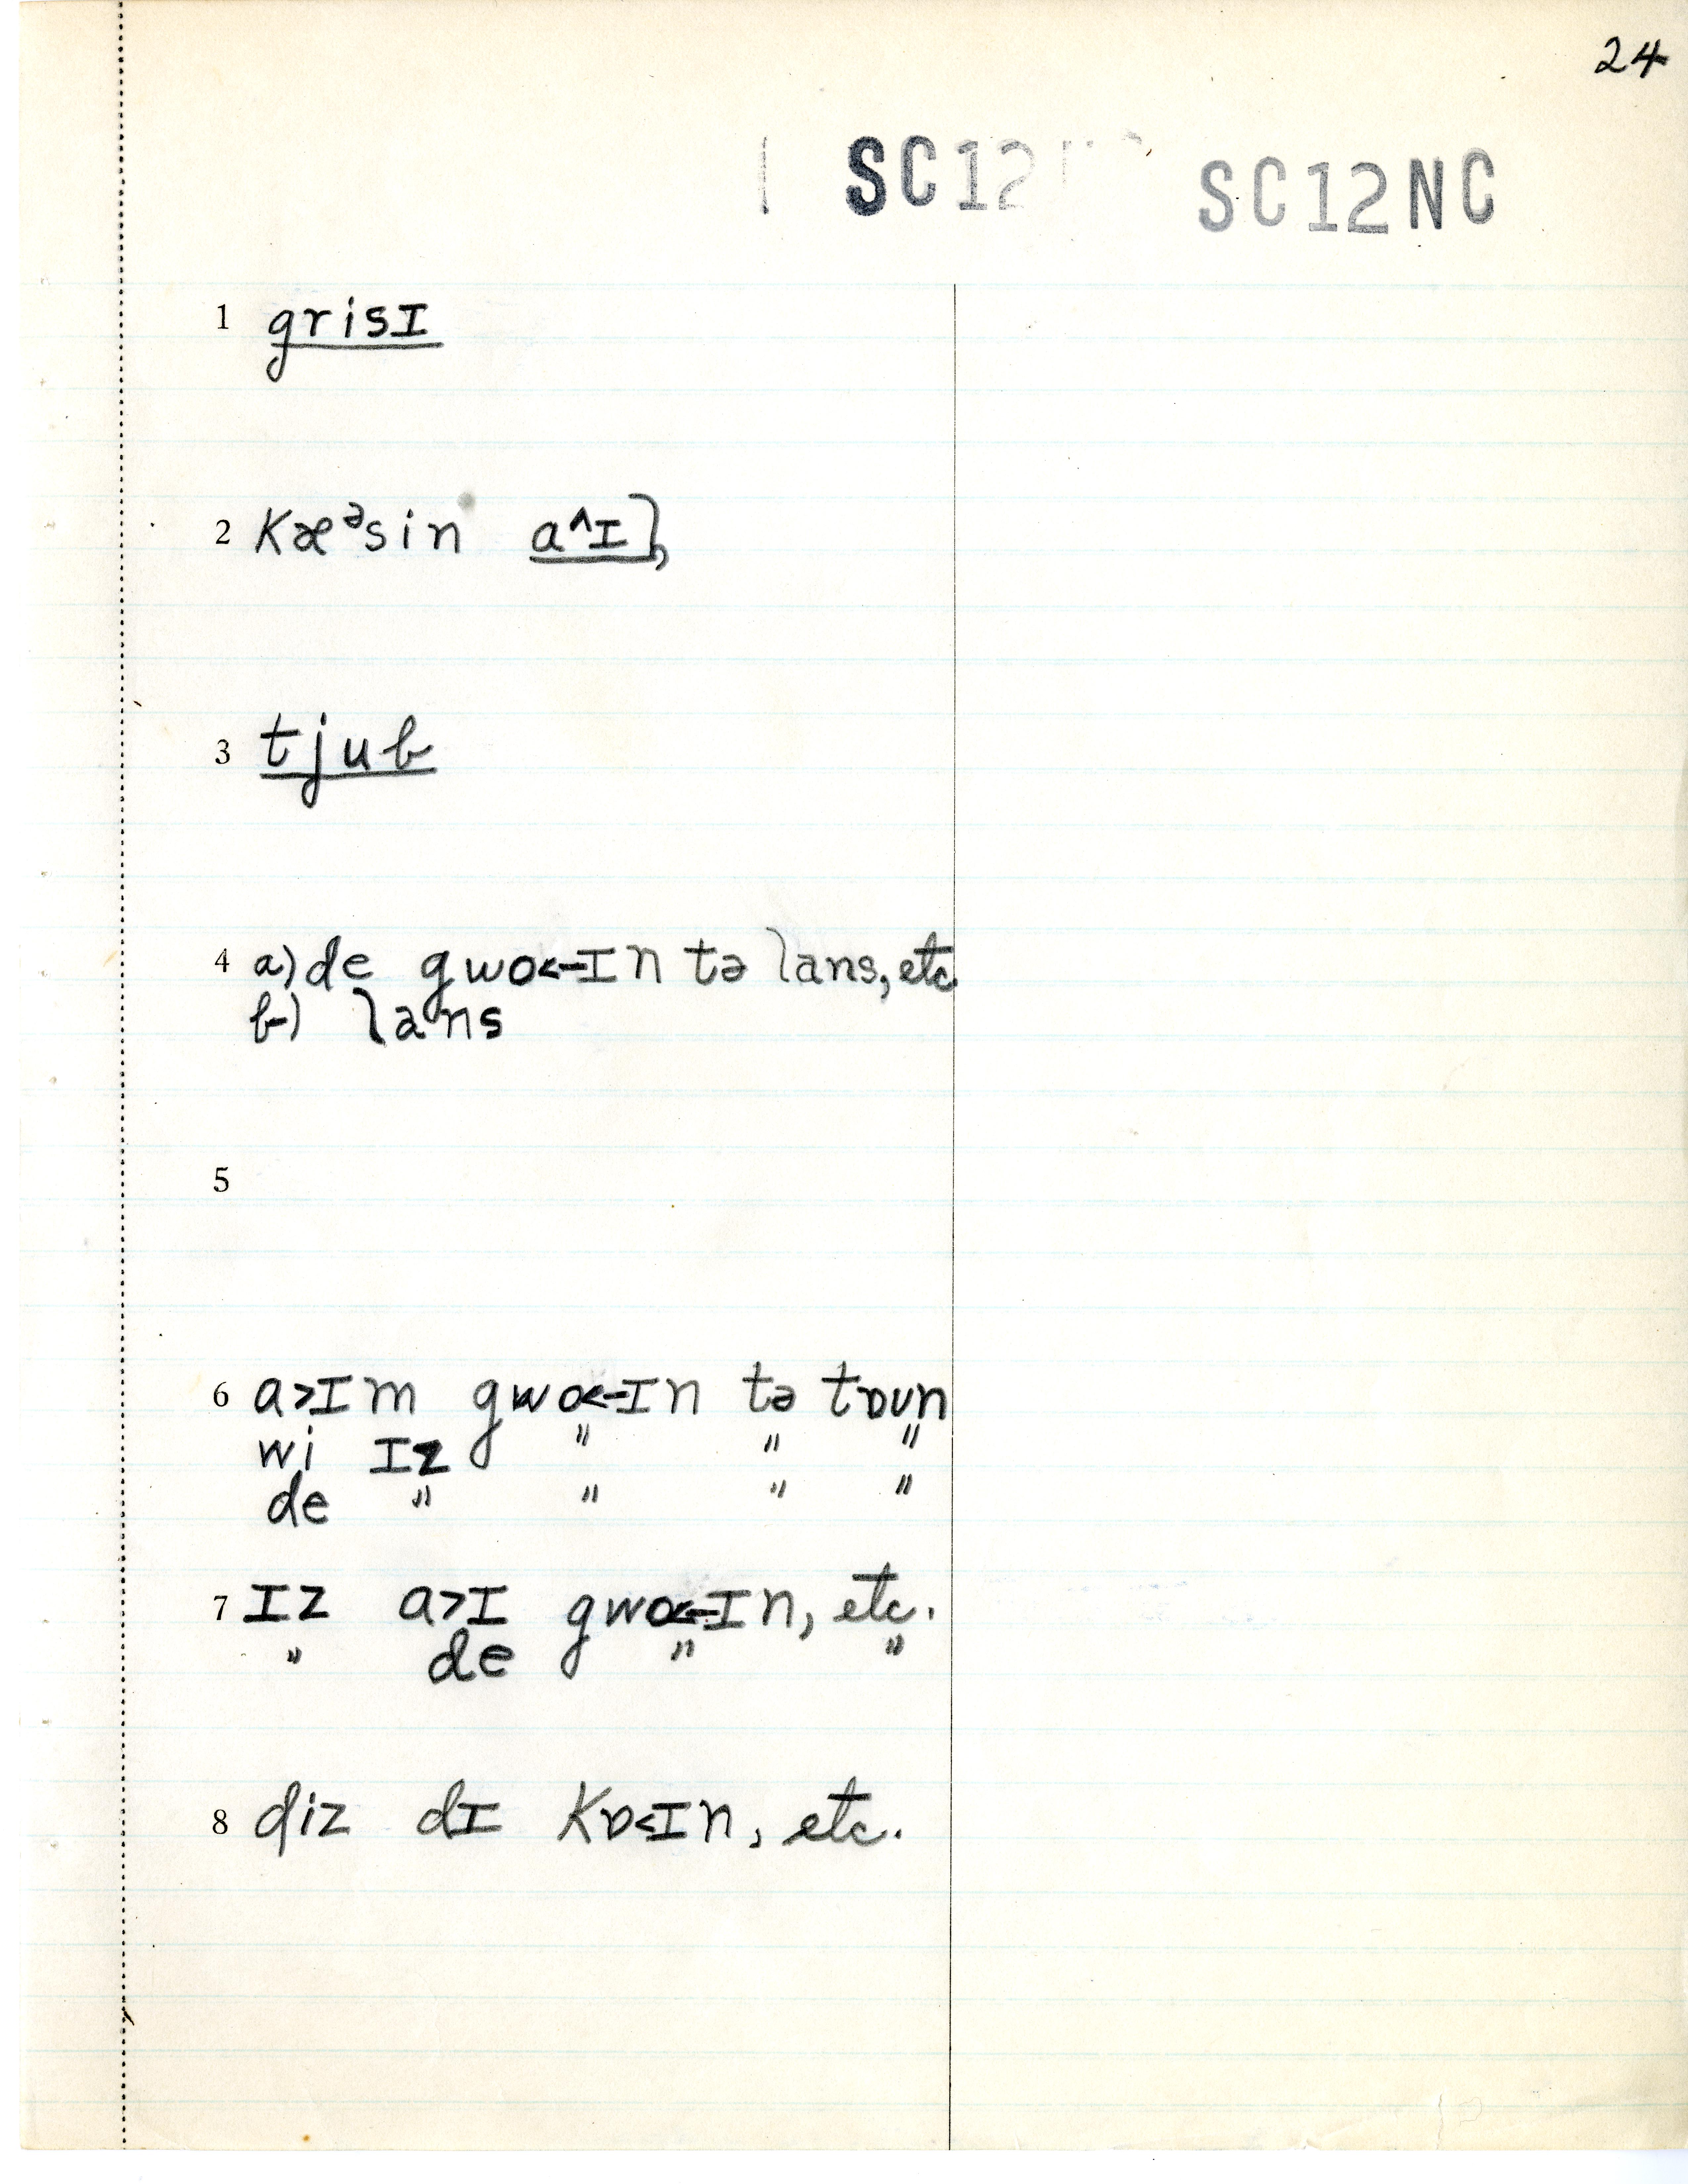 24
SC12 SC12NC
1 grisɪ
2 Kæᵊsin a^ɪ],
3 tjub
4 a) de gwɒ<-ɪn tə lans, etc
b) lans
5
6 a>ɪm gwɒ<-ɪn tə tɒʊn
wi ɪz " " "
de " " " "
7 ɪz a>ɪ gwɒ<-ɪn, etc.
" de " "
8 diz dɪ Kɒ<ɪn, etc.